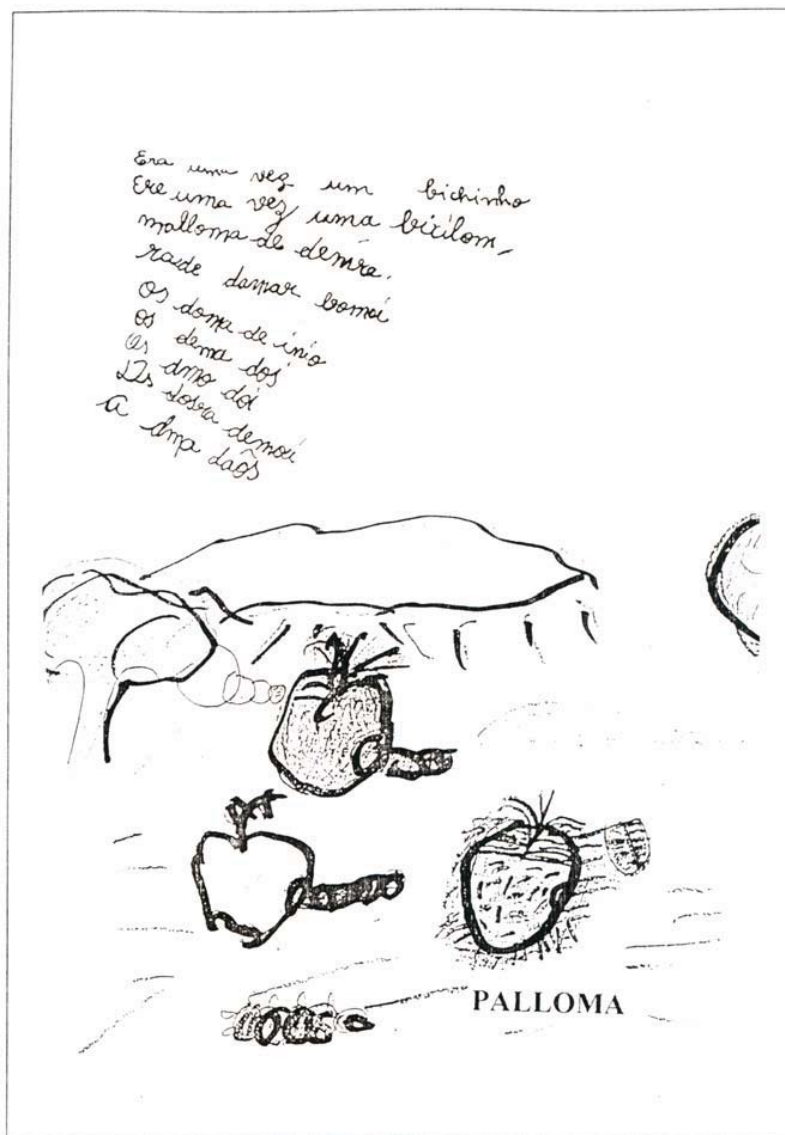 Era uma vez um bichinho
Ere uma vez uma bicilom,
malloma de demra.
rade damar bomoi
os doma de inio
os dema dos
Os dmo doi
dobra demoi
a dmp daõs
PALLOMA